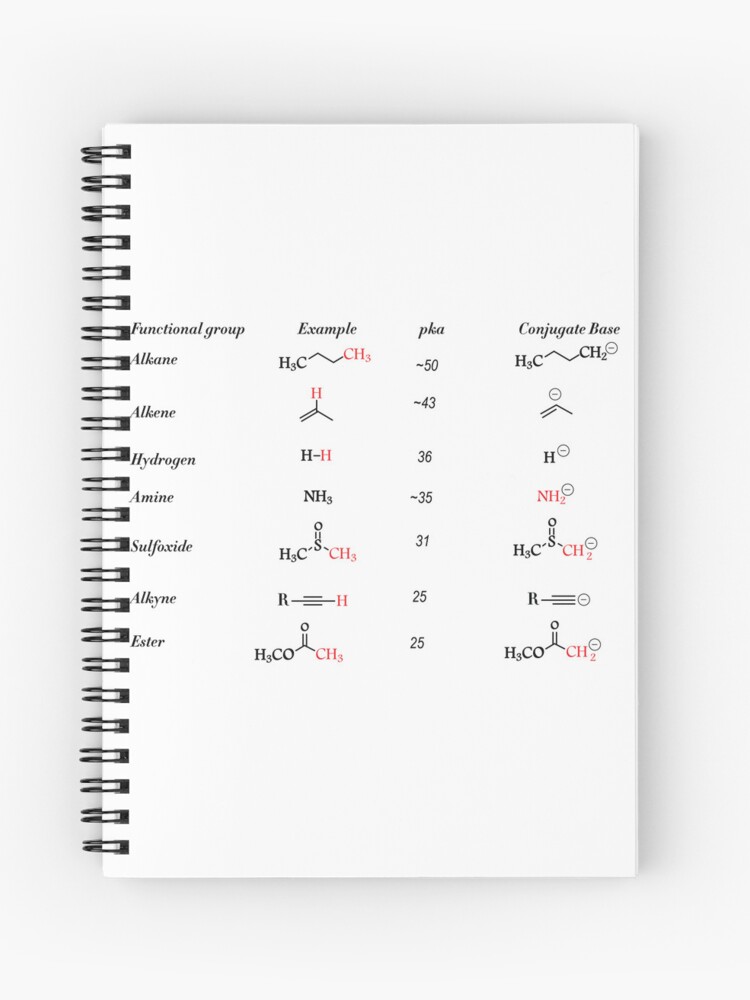 Functional group Example pka Conjugate Base
Alkane H₃C CH₃ ~50 H₃C CH₂⊖
Alkene H ~43 ⊖
Hydrogen H–H 36 H⊖
Amine NH₃ ~35 NH₂⊖
O O
Sulfoxide H₃C S CH₃ 31 H₃C S CH₂⊖
Alkyne R H 25 R ⊖
O O
Ester H₃CO CH₃ 25 H₃CO CH₂⊖